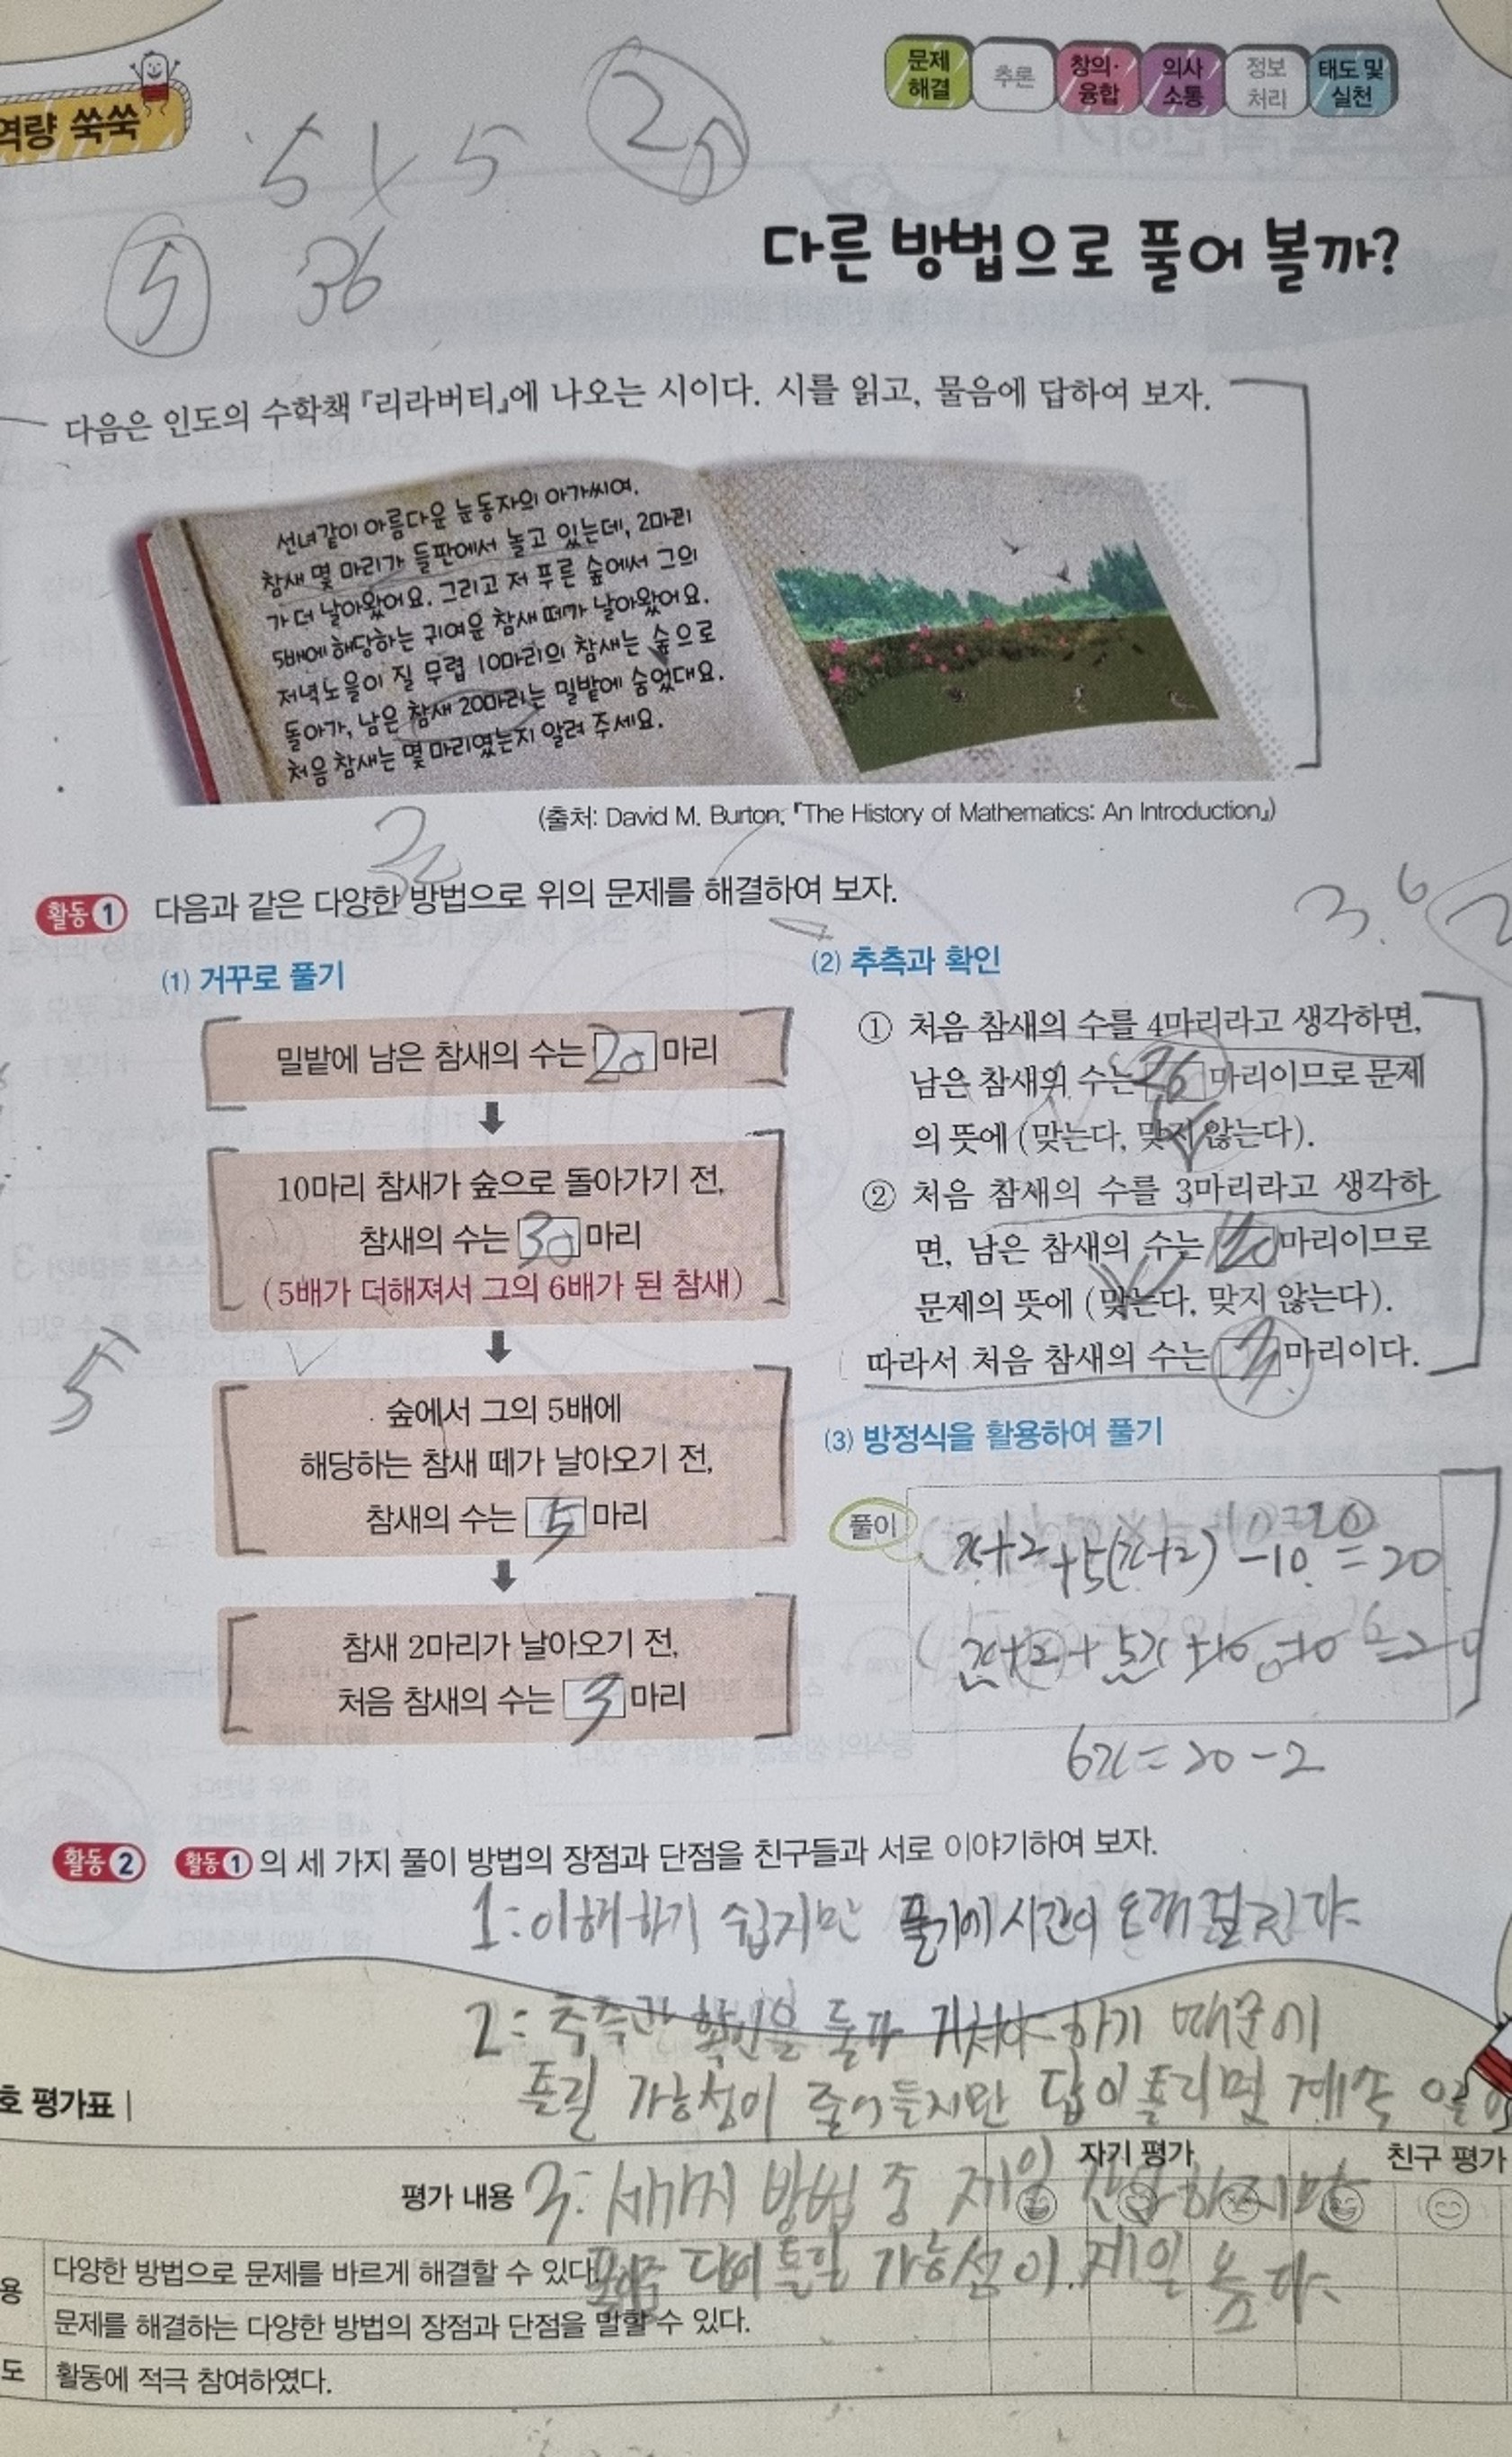 역량 쑥쑥
문제 해결
추론
창의·융합
의사소통
정보 처리
태도 및 실천
5 x 5 25
5 36
다른 방법으로 풀어 볼까?
다음은 인도의 수학책 『리라버티』에 나오는 시이다. 시를 읽고, 물음에 답하여 보자.
선녀같이 아름다운 눈동자의 아가씨여,
참새 몇 마리가 들판에서 놀고 있는데, 2마리
가 더 날아왔어요. 그리고 저 푸른 숲에서 그의
5배에 해당하는 귀여운 참새 떼가 날아왔어요.
저녁노을이 질 무렵 10마리의 참새는 숲으로
돌아가, 남은 참새 20마리는 밀밭에 숨었대요.
처음 참새는 몇 마리였는지 알려 주세요.
(출처: David M. Burton, 『The History of Mathematics: An Introduction』)
활동 1 다음과 같은 다양한 방법으로 위의 문제를 해결하여 보자.
(1) 거꾸로 풀기
밀밭에 남은 참새의 수는 20 마리
10마리 참새가 숲으로 돌아가기 전,
참새의 수는 30 마리
(5배가 더해져서 그의 6배가 된 참새)
숲에서 그의 5배에
해당하는 참새 떼가 날아오기 전,
참새의 수는 5 마리
참새 2마리가 날아오기 전,
처음 참새의 수는 3 마리
5
(2) 추측과 확인
① 처음 참새의 수를 4마리라고 생각하면,
남은 참새의 수는 26 마리이므로 문제
의 뜻에 (맞는다, 맞지 않는다).
② 처음 참새의 수를 3마리라고 생각하
면, 남은 참새의 수는 20 마리이므로
문제의 뜻에 (맞는다, 맞지 않는다).
따라서 처음 참새의 수는 3 마리이다.
(3) 방정식을 활용하여 풀기
풀이
x+2+5(x+2)-10=20
x+2+5x+10-10=20
6x=20-2
활동 2 활동 1 의 세 가지 풀이 방법의 장점과 단점을 친구들과 서로 이야기하여 보자.
1: 이해하기 쉽지만 풀기에 시간이 오래 걸린다.
2: 추측과 확인을 둘다 거쳐야 하기 때문에
틀릴 가능성이 줄어들지만 답이 틀리면 계속
3: 세가지 방법 중 제일 간단하지만
답이 틀릴 가능성이 제일 높다.
호 평가표 |
평가 내용
자기 평가
친구 평가
용
다양한 방법으로 문제를 바르게 해결할 수 있다.
문제를 해결하는 다양한 방법의 장점과 단점을 말할 수 있다.
도
활동에 적극 참여하였다.